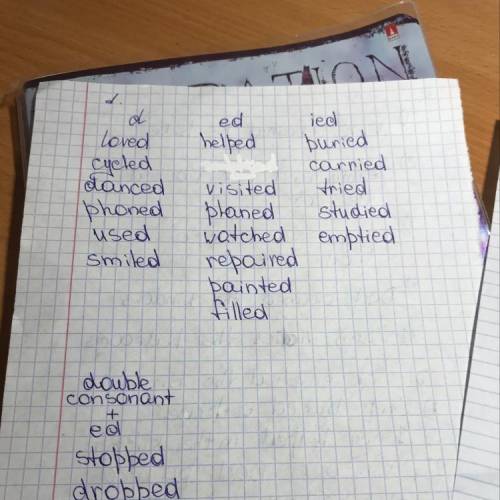 1.
d ed ied
loved helped buried
cycled carried
danced visited tried
phoned planed studied
used watched emptied
smiled repaired
painted
filled
double
consonant
+
ed
stopped
dropped